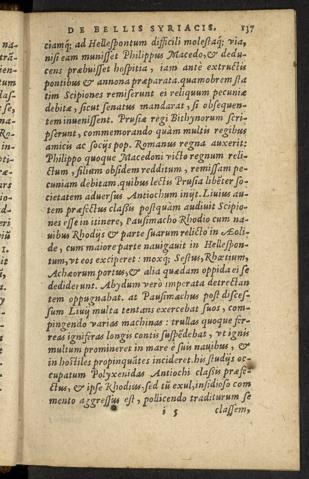 DE BELLIS SYRIACIS. 137
ciamq; ad Hellespontum difficili molestaq; via,
nisi eam munisset Philippus Macedo, & dedu-
cens præbuisset hospitia, iam antè extructis
pontibus & annona præparata. quamobrem sta
tim Scipiones remiserunt ei reliquum pecuniæ
debitæ, sicut senatus mandarat, si obsequen-
tem inuenissent. Prusiæ regi Bithynorum scri-
pserunt, commemorando quàm multis regibus
amicis ac socijs pop. Romanus regna auxerit:
Philippo quoque Macedoni victo regnum reli-
ctum, filium obsidem redditum, remissam pe-
cuniam debitam. quibus lectis Prusia libẽter so-
cietatem aduersus Antiochum inijt. Liuius au-
tem præfectus classis postquàm audiuit Scipio-
nes esse in itinere, Pausimacho Rhodio cum na-
uibus Rhodijs & parte suarum relicto in Æoli-
de, cum maiore parte nauigauit in Hellespon-
tum, vt eos exciperet: moxq; Sestus, Rhœtium,
Achæorum portus, & alia quædam oppida ei se
dediderunt. Abydum verò imperata detrectan
tem oppugnabat. at Pausimachus post disces-
sum Liuij multa tentans exercebat suos, com-
pingendo varias machinas: trullas quoque fer-
reas igniferas longis contis suspẽdebat, vt ignis
multum promineret in mare è suis nauibus, &
in hostiles propinquãtes incideret. his studijs oc-
cupatum Polyxenidas Antiochi classis præfe-
ctus, & ipse Rhodius, sed tũ exul, insidioso com
mento aggressus est, pollicendo traditurum se
i 5 classem,